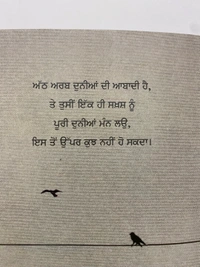 ਅੱਠ ਅਰਬ ਦੁਨੀਆਂ ਦੀ ਆਬਾਦੀ ਹੈ,
ਤੇ ਤੁਸੀਂ ਇੱਕ ਹੀ ਸਖ਼ਸ਼ ਨੂੰ
ਪੂਰੀ ਦੁਨੀਆਂ ਮੰਨ ਲਓ,
ਇਸ ਤੋਂ ਉੱਪਰ ਕੁਝ ਨਹੀਂ ਹੋ ਸਕਦਾ।